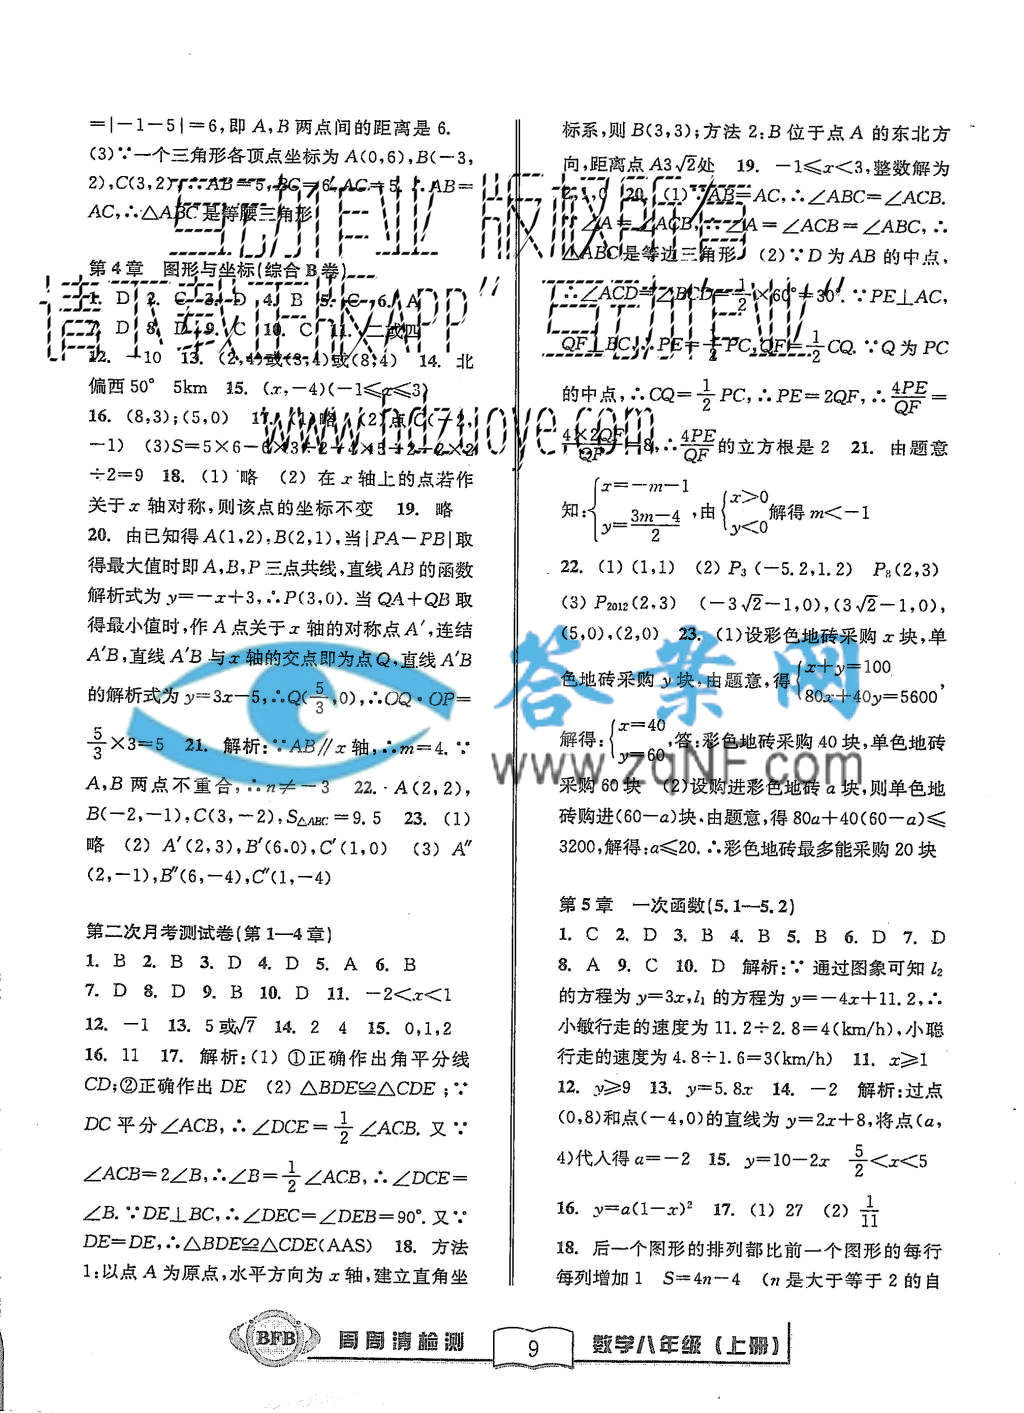 =|-1-5|=6,即A,B两点间的距离是6.
(3)∵一个三角形各顶点坐标为A(0,6),B(-3,
2),C(3,2),∴AB=5,BC=6,AC=5,∴AB=
AC,∴△ABC是等腰三角形
第4章 图形与坐标(综合B卷)
1. D 2. C 3. D 4. B 5. C 6. A
7. D 8. D 9. C 10. C 11. 二或四
12. -10 13. (2,4)或(3,4)或(8,4) 14. 北
偏西50° 5km 15. (x,-4)(-1≤x≤3)
16. (8,3);(5,0) 17. (1)略 (2)点C(-2,
-1) (3)S=5×6-6×3÷2-4×5÷2-2×2
÷2=9 18. (1)略 (2)在x轴上的点若作
关于x轴对称,则该点的坐标不变 19. 略
20. 由已知得A(1,2),B(2,1),当|PA-PB|取
得最大值时即A,B,P三点共线,直线AB的函数
解析式为y=-x+3,∴P(3,0).当QA+QB取
得最小值时,作A点关于x轴的对称点A′,连结
A′B,直线A′B与x轴的交点即为点Q,直线A′B
的解析式为y=3x-5,∴Q(5/3,0),∴OQ·OP=
5/3×3=5 21. 解析:∵AB∥x轴,∴m=4.∵
A,B两点不重合,∴n≠-3 22. A(2,2),
B(-2,-1),C(3,-2),S△ABC=9.5 23. (1)
略 (2)A′(2,3),B′(6,0),C′(1,0) (3)A″
(2,-1),B″(6,-4),C″(1,-4)
第二次月考测试卷(第1—4章)
1. B 2. B 3. D 4. D 5. A 6. B
7. D 8. D 9. B 10. D 11. -2<x<1
12. -1 13. 5或√7 14. 2 4 15. 0,1,2
16. 11 17. 解析:(1)①正确作出角平分线
CD;②正确作出DE (2)△BDE≌△CDE;∵
DC平分∠ACB,∴∠DCE=1/2∠ACB.又∵
∠ACB=2∠B,∴∠B=1/2∠ACB,∴∠DCE=
∠B.∵DE⊥BC,∴∠DEC=∠DEB=90°.又∵
DE=DE,∴△BDE≌△CDE(AAS) 18. 方法
1:以点A为原点,水平方向为x轴,建立直角坐
标系,则B(3,3);方法2:B位于点A的东北方
向,距离点A3√2处 19. -1≤x<3,整数解为
2,1,0 20. (1)∵AB=AC,∴∠ABC=∠ACB.
∵∠A=∠ACB,∴∠A=∠ACB=∠ABC,∴
△ABC是等边三角形 (2)∵D为AB的中点,
∴∠ACD=∠BCD=1/2×60°=30°.∵PE⊥AC,
QF⊥BC,∴PE=1/2PC,QF=1/2CQ.∵Q为PC
的中点,∴CQ=1/2PC,∴PE=2QF,∴4PE/QF=
4×2QF/QF=8,∴4PE/QF的立方根是2 21. 由题意
知:{x=-m-1 y=(3m-4)/2,由{x>0 y<0解得m<-1
22. (1)(1,1) (2)P3(-5.2,1.2) P8(2,3)
(3)P2012(2,3) (-3√2-1,0),(3√2-1,0),
(5,0),(2,0) 23. (1)设彩色地砖采购x块,单
色地砖采购y块,由题意,得{x+y=100 80x+40y=5600,
解得:{x=40 y=60,答:彩色地砖采购40块,单色地砖
采购60块 (2)设购进彩色地砖a块,则单色地
砖购进(60-a)块.由题意,得80a+40(60-a)≤
3200,解得:a≤20.∴彩色地砖最多能采购20块
第5章 一次函数(5.1—5.2)
1. C 2. D 3. B 4. B 5. B 6. D 7. D
8. A 9. C 10. D 解析:∵通过图象可知l2
的方程为y=3x,l1的方程为y=-4x+11.2,∴
小敏行走的速度为11.2÷2.8=4(km/h),小聪
行走的速度为4.8÷1.6=3(km/h) 11. x≥1
12. y≥9 13. y=5.8x 14. -2 解析:过点
(0,8)和点(-4,0)的直线为y=2x+8,将点(a,
4)代人得a=-2 15. y=10-2x 5/2<x<5
16. y=a(1-x)² 17. (1)27 (2)1/11
18. 后一个图形的排列都比前一个图形的每行
每列增加1 S=4n-4 (n是大于等于2的自
互动作业"版权归所有
请下载正版APP"互动作业"
www.hdzuoye.com
答案网
www.zqNF.com
BFB 周周清检测 9 数学八年级(上册)